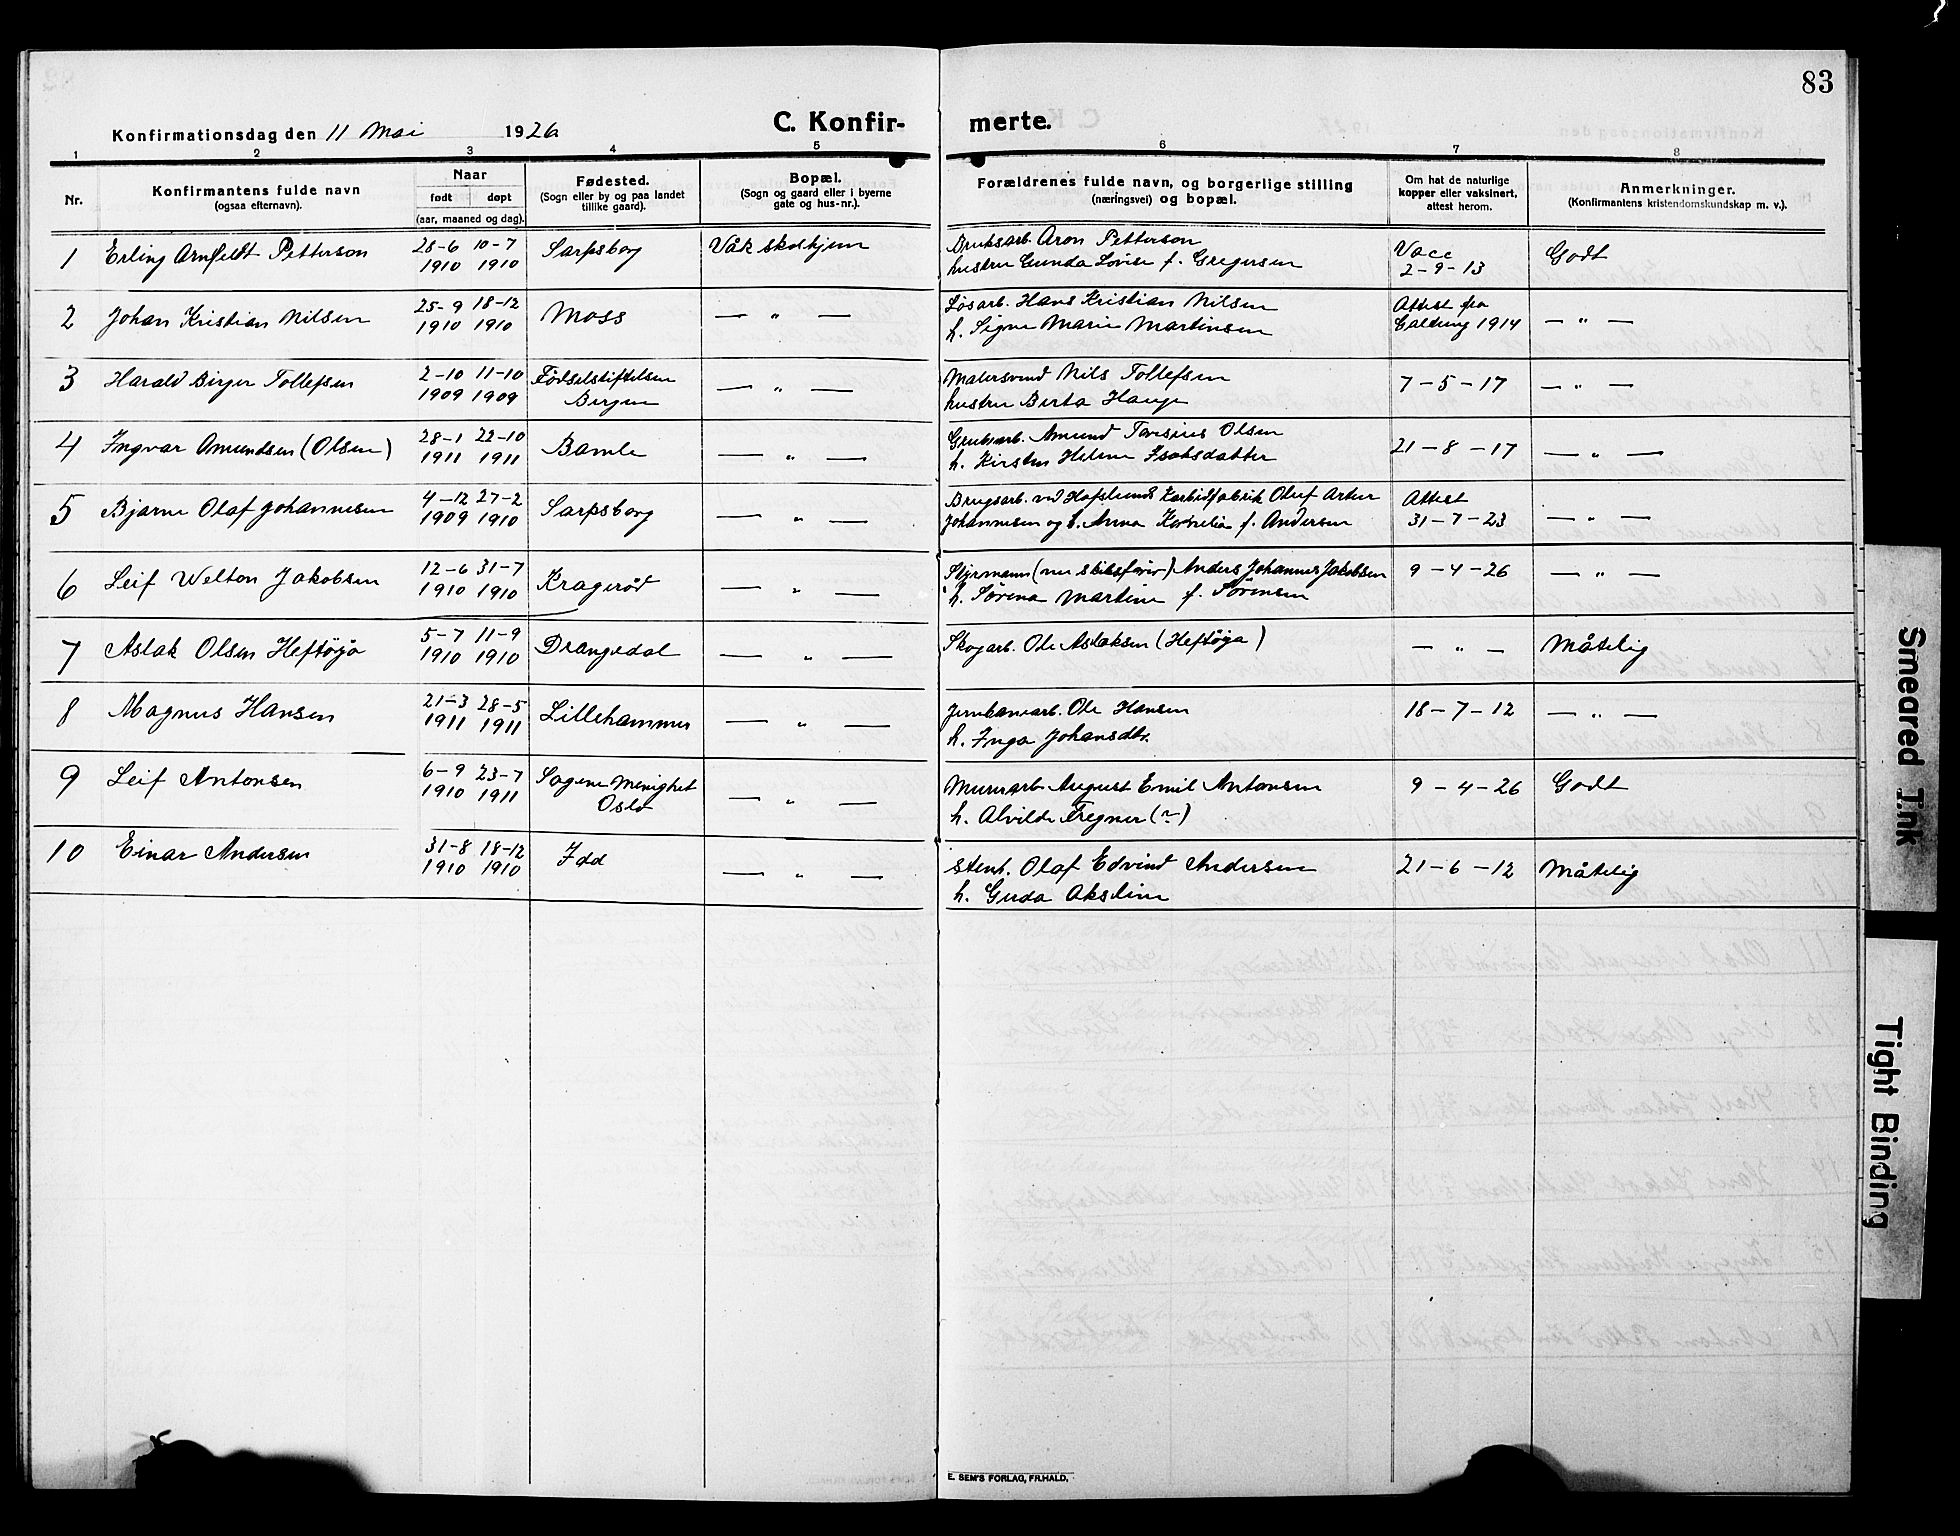 83
Konfirmationsdag den 11 Mai 1926
C. Konfir- merte.
1 2 3 4 5 6 7 8
Nr.
Konfirmantens fulde navn
(ogsaa efternavn).
Naar
født døpt
(aar, maaned og dag).
Fødested.
(Sogn eller by og paa landet
tillike gaard).
Bopæl.
(Sogn og gaard eller i byerne
gate og hus-nr.).
Forældrenes fulde navn, og borgerlige stilling
(næringsvei) og bopæl.
Om hat de naturlige
kopper eller vaksinert,
attest herom.
Anmerkninger.
(Konfirmantens kristendomskundskap m. v.).
1 Erling Arnfeldt Petterson 28-6 10-7 Sarpsborg Våk skolhjem Bruksarb. Aron Petterson Vacc Godt
1910 1910 hustru Gunda Lovise f. Gregersen 2-9-13
2 Johan Kristian Nilsen 25-9 18-12 Moss — " — Løsarb. Hans Kristian Nilsen Attest fra — " —
1910 1910 h. Signe Marie Martinsen 1914
3 Harald Birger Tollefsen 2-10 11-10 Fødselstiftelsen — " — Malersvend Nils Tollefsen 7-5-17 — " —
1909 1909 Bergen hustru Berta Hauge
4 Ingvar Amundsen (Olsen) 28-1 22-10 Bamle — " — Grubearb. Amund Olsen 21-8-17 — " —
1911 1911 h. Kirsten Helene Isaksdatter
5 Bjarne Olaf Johannesen 4-12 27-2 Sarpsborg — " — Brugsarb. ved Hafslunds Karbidfabrik Oluf Artur Attest — " —
1909 1910 Johannesen og h. Anna Kornelia f. Andersen 31-7-23
6 Leif Welton Jakobsen 12-6 31-7 Kragerød — " — Styrmann (nu skibsfører) Anders Johannes Jakobsen 9-4-26 — " —
1910 1910 h. Sørena Martine f. Sørensen
7 Aslak Olsen Heftøja 5-7 11-9 Drangedal — " — Skogarb. Ole Aslaksen (Heftøja) — " — Måtelig
1910 1910
8 Magnus Hansen 21-3 28-5 Lillehammer — " — Jernbanearb. Ole Hansen 18-7-12 — " —
1911 1911 h. Inga Johansdtr.
9 Leif Antonsen 6-9 23-7 Sagene Menighet — " — Murerarb. August Emil Antonsen 9-4-26 Godt
1910 1911 Oslo h. Alvilde Fregner (~)
10 Einar Andersen 31-8 18-12 Idd — " — Stenh. Olaf Edvind Andersen 21-6-12 Måtelig
1910 1910 h. Guda Akseline
E. SEM'S FORLAG, FR.HALD.
Smeared Ink
Tight Binding